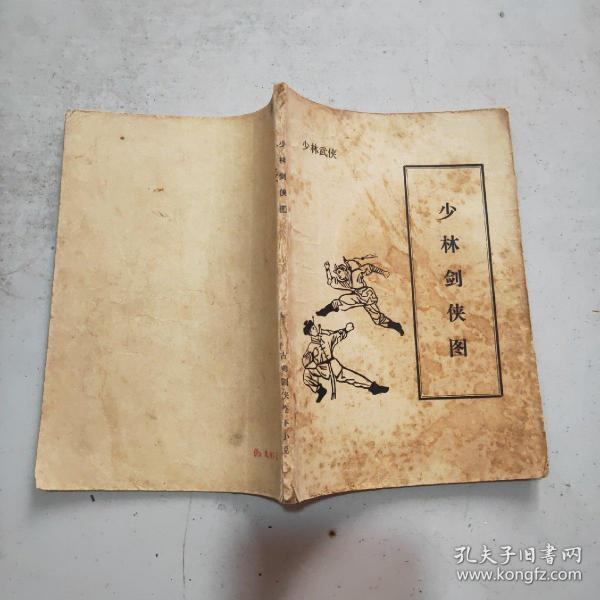 少林武侠
少林剑侠图
少林剑侠图
古典剑侠
小说
孔夫子旧书网
www.kongfz.com